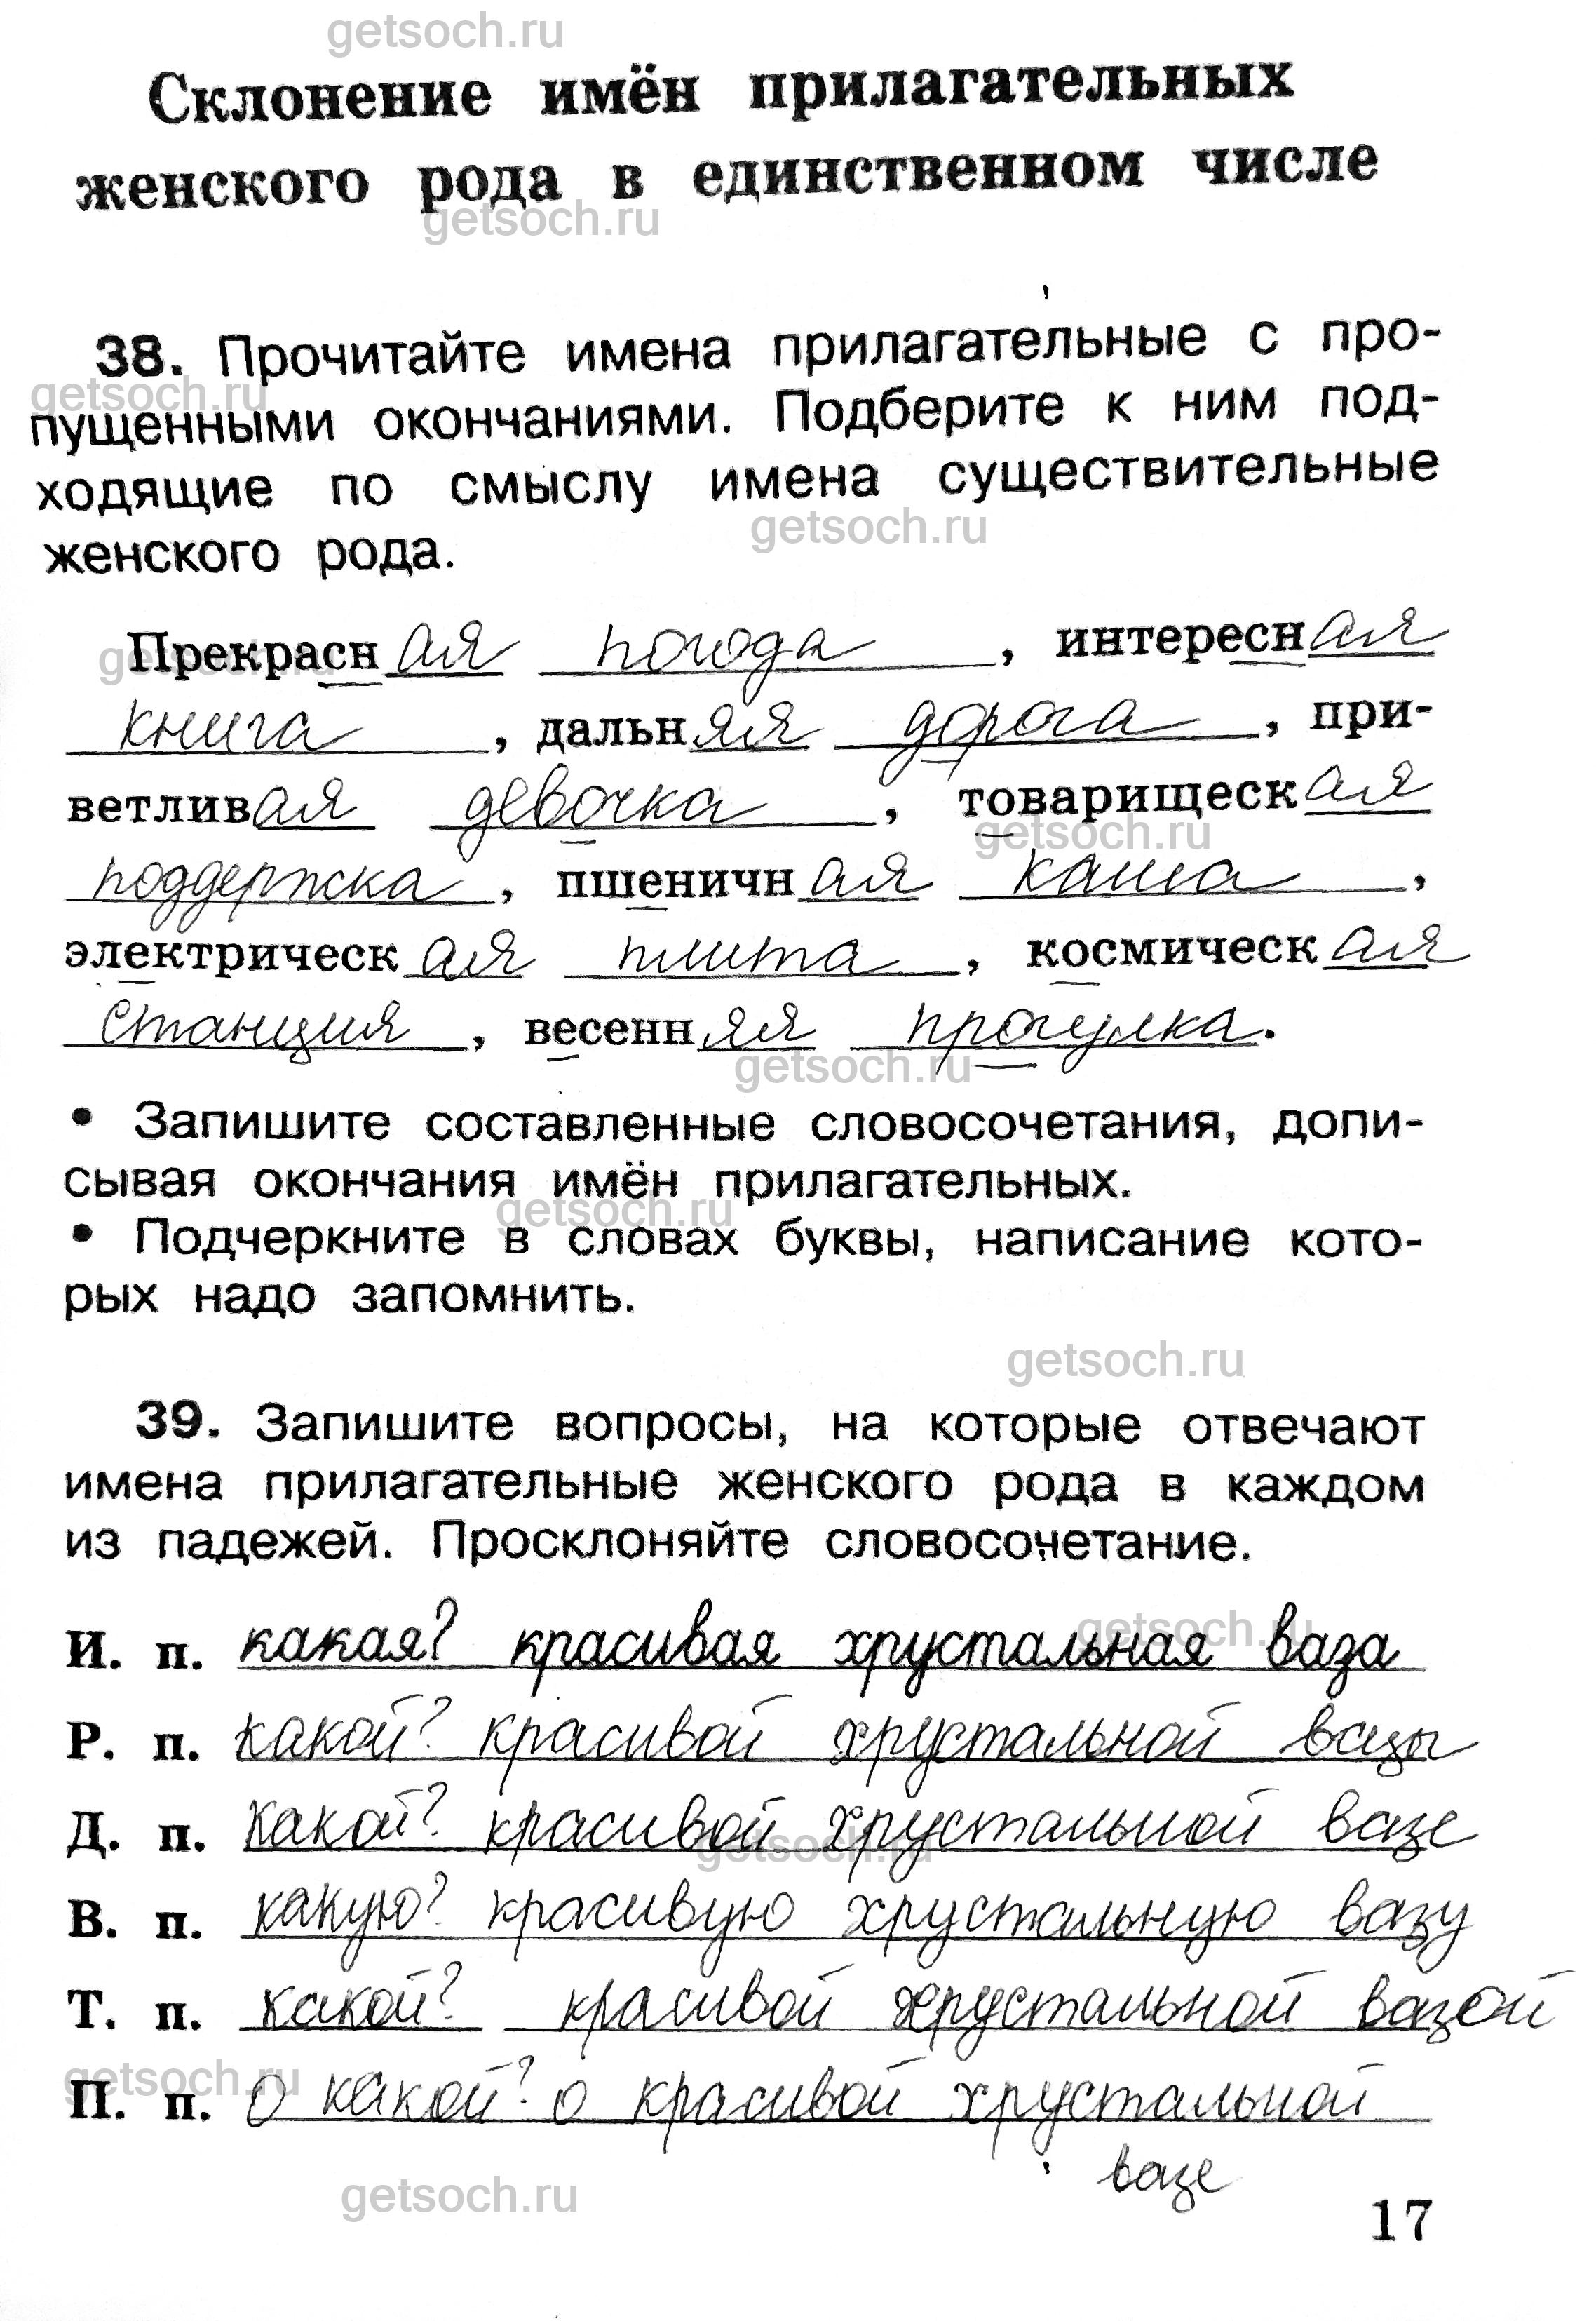 getsoch.ru
Склонение имён прилагательных
женского рода в единственном числе
getsoch.ru
38. Прочитайте имена прилагательные с про-
getsoch.ru
пущенными окончаниями. Подберите к ним под-
ходящие по смыслу имена существительные
getsoch.ru
женского рода.
Прекрасная погода, интересная
getsoch.ru
книга, дальняя дорога, при-
ветливая девочка, товарищеская
getsoch.ru
поддержка, пшеничная каша,
электрическая плита, космическая
станция, весенняя прогулка.
getsoch.ru
• Запишите составленные словосочетания, допи-
сывая окончания имён прилагательных.
getsoch.ru
• Подчеркните в словах буквы, написание кото-
рых надо запомнить.
getsoch.ru
39. Запишите вопросы, на которые отвечают
имена прилагательные женского рода в каждом
из падежей. Просклоняйте словосочетание.
getsoch.ru
И. п. какая? красивая хрустальная ваза
Р. п. какой? красивой хрустальной вазы
Д. п. какой? красивой хрустальной вазе
getsoch.ru
В. п. какую? красивую хрустальную вазу
Т. п. какой? красивой хрустальной вазой
getsoch.ru
П. п. о какой? о красивой хрустальной
вазе
getsoch.ru
17